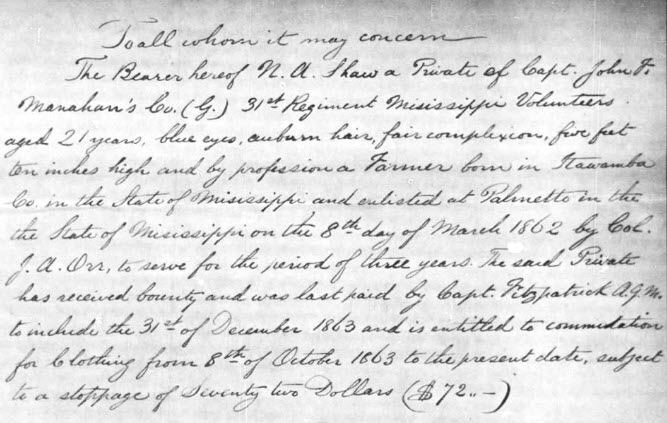 To all whom it may concern
The Bearer hereof N. A. Shaw a Private of Capt. John F.
Manahan's Co. (G.) 31st Regiment Mississippi Volunteers.
aged 21 years, blue eyes, auburn hair, fair complexion, five feet
ten inches high and by profession a Farmer born in Itawamba
Co. in the State of Mississippi and enlisted at Palmetto in the
the State of Mississippi on the 8th day of March 1862 by Col.
J. A. Orr, to serve for the period of three years. The said Private
has received bounty and was last paid by Capt. Fitzpatrick A.Q.M.
to include the 31st of December 1863 and is entitled to commutation
for Clothing from 8th of October 1863 to the present date, subject
to a stoppage of Seventy two Dollars ($72..—)